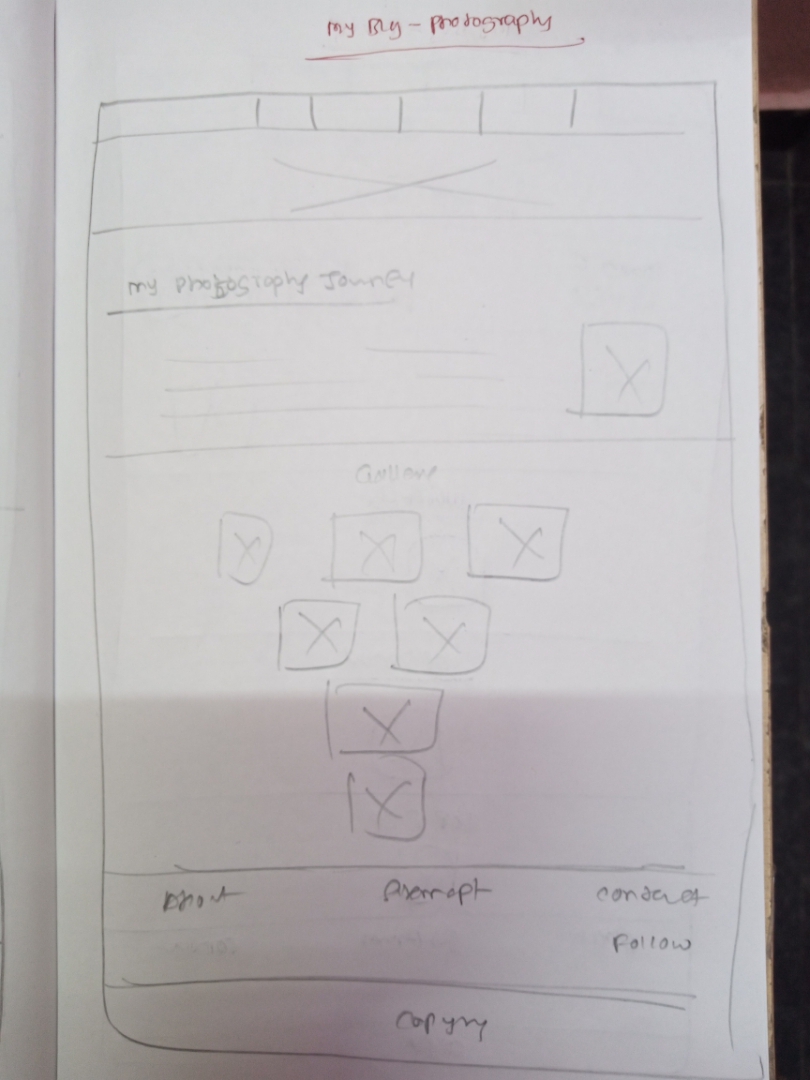 my Blg - photography
my photography Journey
About
contact
Follow
copyry